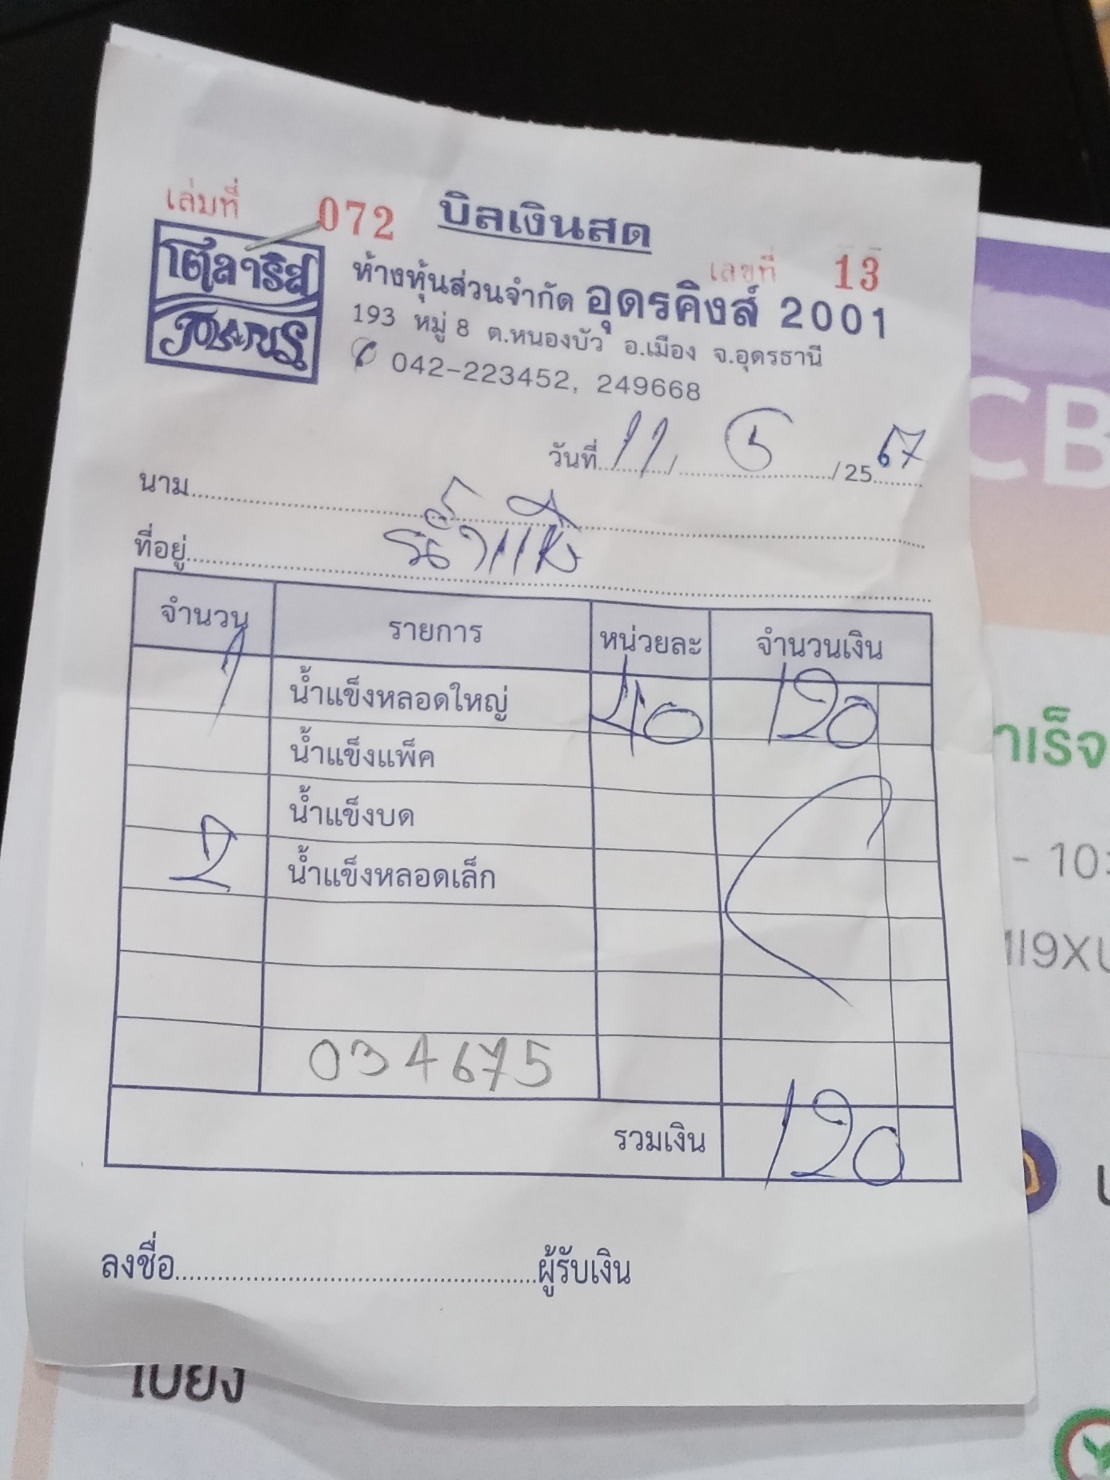 เล่มที่ 072 บิลเงินสด
เลขที่ 13
โตลาริส
POLARIS
ห้างหุ้นส่วนจำกัด อุดรคิงส์ 2001
193 หมู่ 8 ต.หนองบัว อ.เมือง จ.อุดรธานี
042-223452, 249668
วันที่ 11 / 5 / 25 67
นาม
น้ำแข็ง
ที่อยู่
จำนวน รายการ หน่วยละ จำนวนเงิน
1 น้ำแข็งหลอดใหญ่ 40 120
น้ำแข็งแพ็ค
น้ำแข็งบด
2 น้ำแข็งหลอดเล็ก
034675
รวมเงิน 120
ลงชื่อ ผู้รับเงิน
CB
าเร็จ
- 10: